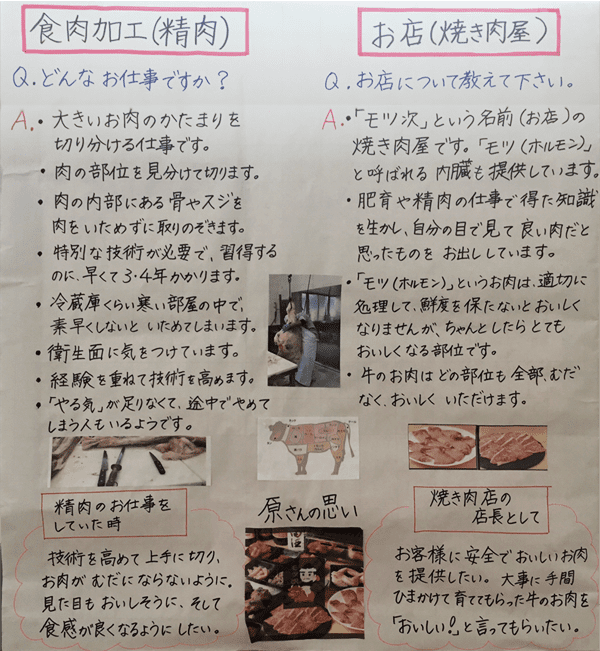 食肉加工(精肉)
Q.どんなお仕事ですか?
A.・大きいお肉のかたまりを
切り分ける仕事です。
・肉の部位を見分けて切ります。
・肉の内部にある骨やスジを
肉をいためずに取りのぞきます。
・特別な技術が必要で、習得する
のに、早くて3・4年かかります。
・冷蔵庫くらい寒い部屋の中で、
素早くしないといためてしまいます。
・衛生面に気をつけています。
・経験を重ねて技術を高めます。
・「やる気」が足りなくて、途中でやめて
しまう人もいるようです。
お店(焼き肉屋)
Q.お店について教えて下さい。
A.・「モツ次」という名前(お店)の
焼き肉屋です。「モツ(ホルモン)」
と呼ばれる内臓も提供しています。
・肥育や精肉の仕事で得た知識
を生かし、自分の目で見て良い肉だと
思ったものをお出ししています。
・「モツ(ホルモン)」というお肉は、適切に
処理して、鮮度を保たないとおいしく
なりませんが、ちゃんとしたらとても
おいしくなる部位です。
・牛のお肉はどの部位も全部、むだ
なく、おいしくいただけます。
原さんの思い
精肉のお仕事を
していた時
技術を高めて上手に切り、
お肉がむだにならないように。
見た目もおいしそうに、そして
食感が良くなるようにしたい。
焼き肉店の
店長として
お客様に安全でおいしいお肉
を提供したい。大事に手間
ひまかけて育ててもらった牛のお肉を
「おいしい!」と言ってもらいたい。